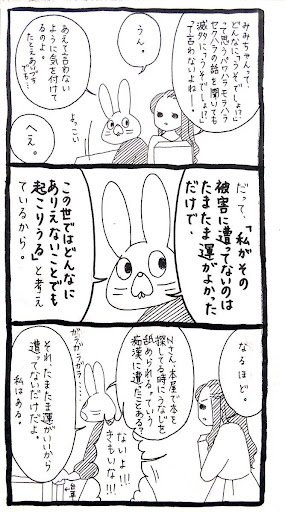 みみちゃんって
どんなに「うっそでしょ!?」
って思うパワハラモラハラ
セクハラの話を聞いても
滅多に「うそでしょ!?」
って言わないよねー。
うん。
あえて言わない
ように気を付けて
るのよ。
たとえあいづち
でも。
よっこい
へぇ。
だって、
「私がその
被害に遭ってないのは
たまたま運がよかった
だけで、
この世ではどんなに
ありえないことでも
起こりうる」と考え
ているから。
なるほど。
Nさん、本屋で本を
探してる時にうなじを
舐められるっていう
痴漢に遭ったことある?
ないよ!!!
きもいな!!!
ガラガラガラ…
それ、たまたま運がいいから
遭ってないだけだよ。
私はある。